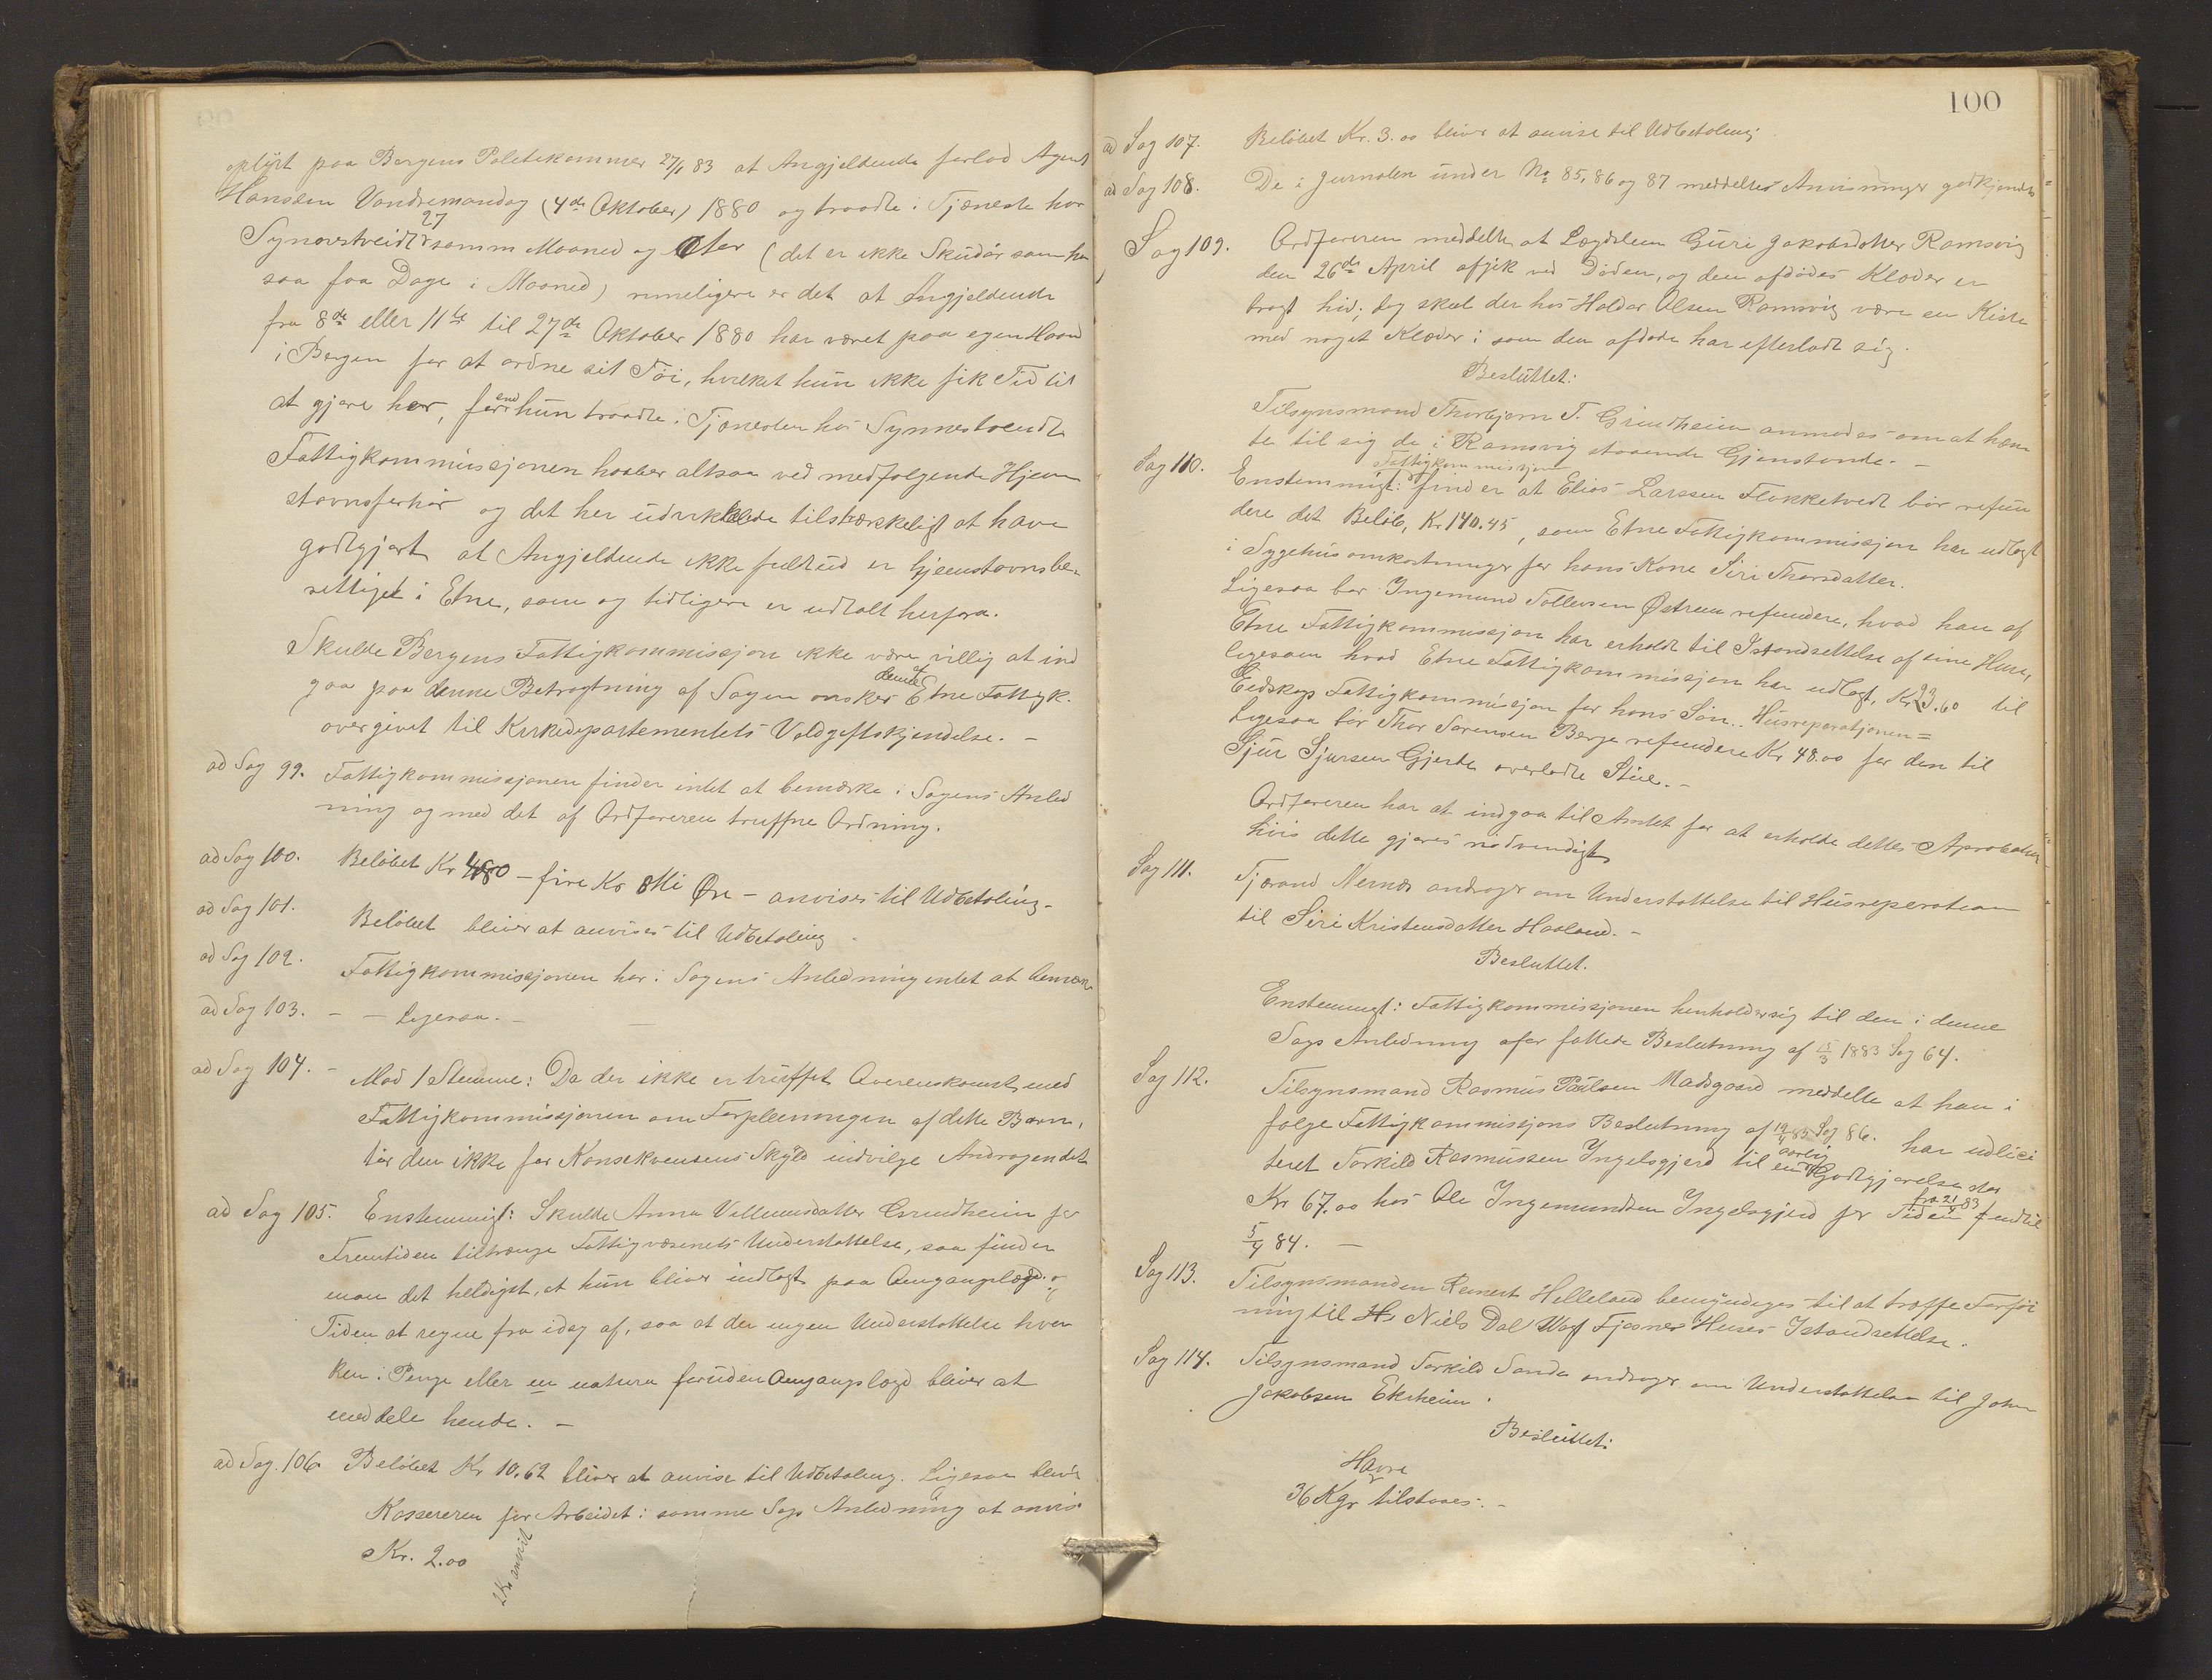 oplyst paa Bergens Politikammer 27/1 83 at Angjeldende forlod Agent
Hansen Vandremandag (4de Oktober) 1880 og traadte i Tjeneste hos
Synnestvedt 27 samm Maaned og Aar (det er ikke Skudår som har
saa faa Dage i Maaned) rimeligere er det at Angjeldende
fra 8de eller 11te til 27de Oktober 1880 har været paa egen Haand
i Bergen for at ordne sit Töi, hvilket hun ikke fik Tid til
at gjøre her, førend hun traadte i Tjenesten hos Synnestvedt
Fattigkommissjonen haaber altsaa ved medfølgende Hjem
stavnsforhör og det her udviklede tilstrækkeligt at have
godtgjort at Angjeldende ikke fuldtud er hjemstavnsbe-
rettiget i Etne, som og tidligere er udtalt herfra.
Skulde Bergens Fattigkommissjon ikke være villig at ind
gaa paa denne Betragtning af Sagen ønsker Etne Fattigk. denne
overgivet til Kirkedepartementets Voldgiftskjendelse. -
ad Sag 99. Fattigkommissjonen finder intet at bemærke i Sagens Anled
ning og med det af Ordføreren trufne Ordning.
ad Sag 100. Beløbet Kr 4.80 - fire Kr otti Øre - anvises til Udbetaling -
ad Sag 101. Beløbet bliver at anvises til Udbetaling -
ad Sag 102. Fattigkommissjonen har i Sagens Anledning intet at bemærke
ad Sag 103. - - Ligesaa. -
ad Sag 104. - Mod 1 Stemme: Da der ikke er truffet Overenskomst med
Fattigkommissjonen om Forpleiningen af dette Barn,
tör den ikke for Konsekvensens Skyld indvilge Andragendet
ad Sag 105. Enstemmigt: Skulde Anna Villumsdatter Grindheim for
Fremtiden tiltrænge Fattigvæsenets Understøttelse, saa finder
man det heldigst, at hun bliver indlagt paa Omgangslægd og
Tiden at regne fra idag af, saa at der ingen Understøttelse hver
ken i Penge eller in natura foruden Omgangslægd bliver at
meddele hende. -
ad Sag. 106 Beløbet Kr 10.62 bliver at anvise til Udbetaling. Ligesaa blivr
Kassereren for Arbeidet i samme Sags Anledning at anvise
Kr. 2.00
2 Kr anvist
100
ad Sag 107. Beløbet Kr. 3.00 bliver at anvise til Udbetaling
ad Sag 108. De i Jurnalen under No 85, 86 og 87 meddeltes Anvisninger godkjendes
Sag 109. Ordføreren meddelte at Lægdslem Guri Jakobsdatter Ramsvig
den 26de April afgik ved Døden, og den afdødes Klæder er
bragt hid; dog skal der hos Haldor Olsen Ramsvig være en Kiste
med noget Klæder i som den afdøde har efterladt sig.
Besluttet:
Tilsynsmand Thorbjørn T. Grindheim anmodes om at hæn
te til sig de i Ramsvig staaende Gjenstande. -
Sag 110. Enstemmigt: Fattigkommissjonen finder at Elias Larssen Flokketvedt bör refun
dere det Beløb, Kr 140.45, som Etne Fattigkommissjon har udlagt
i Sygehusomkostninger for hans Kone Siri Thorsdatter.
Ligesaa bør Ingemund Tollevsen Østrem refundere, hvad han af
Etne Fattigkommissjon har erholdt til Istandsettelse af sine Huse,
ligesom hvad Etne Fattigkommissjon har udlagt, Kr 93.60 til
Eidskogs Fattigkommissjon for hans Sön. Husreperatjonen =
Ligesaa bör Thor Sørensen Berge refundere Kr 48.00 for den til
Sjur Sjursen Gjerde overladte Stue. -
Ordføreren har at indgaa til Amtet for at erholde dettes Aprobation
hvis dette gjøres nødvendigt
Sag 111. Tjerand Nernæs andrager om Understøttelse til Husreperation
til Siri Kristensdatter Haaland. -
Besluttet.
Enstemmigt: Fattigkommissjonen henholder sig til den i denne
Sags Anledning afor fattede Beslutning af 15/3 1883 Sag 64.
Sag 112. Tilsynsmand Rasmus Paulsen Madsgaard meddelte at han i
følge Fattigkommissjons Beslutning af 19/4 83 Sag 86. har udlici
teret Torkild Rasmussen Ingelsgjerd til en aarlig Godtgjørelse stor
Kr 67.00 hos Ole Ingemundsen Ingelsgjerd for Tiden fra 21/4 83 indtil
5/4 84. -
Sag 113. Tilsynsmanden Reinert Helleland bemyndiges til at træffe Forföi
ning til Niels Dal Fjøsnes Huses Istandsettelse.
Sag 114. Tilsynsmand Torkild Sande andrager om Understøttelse til John
Jakobsen Ekrheim.
Besluttet:
36 Kgr Havre tilstaaes. -